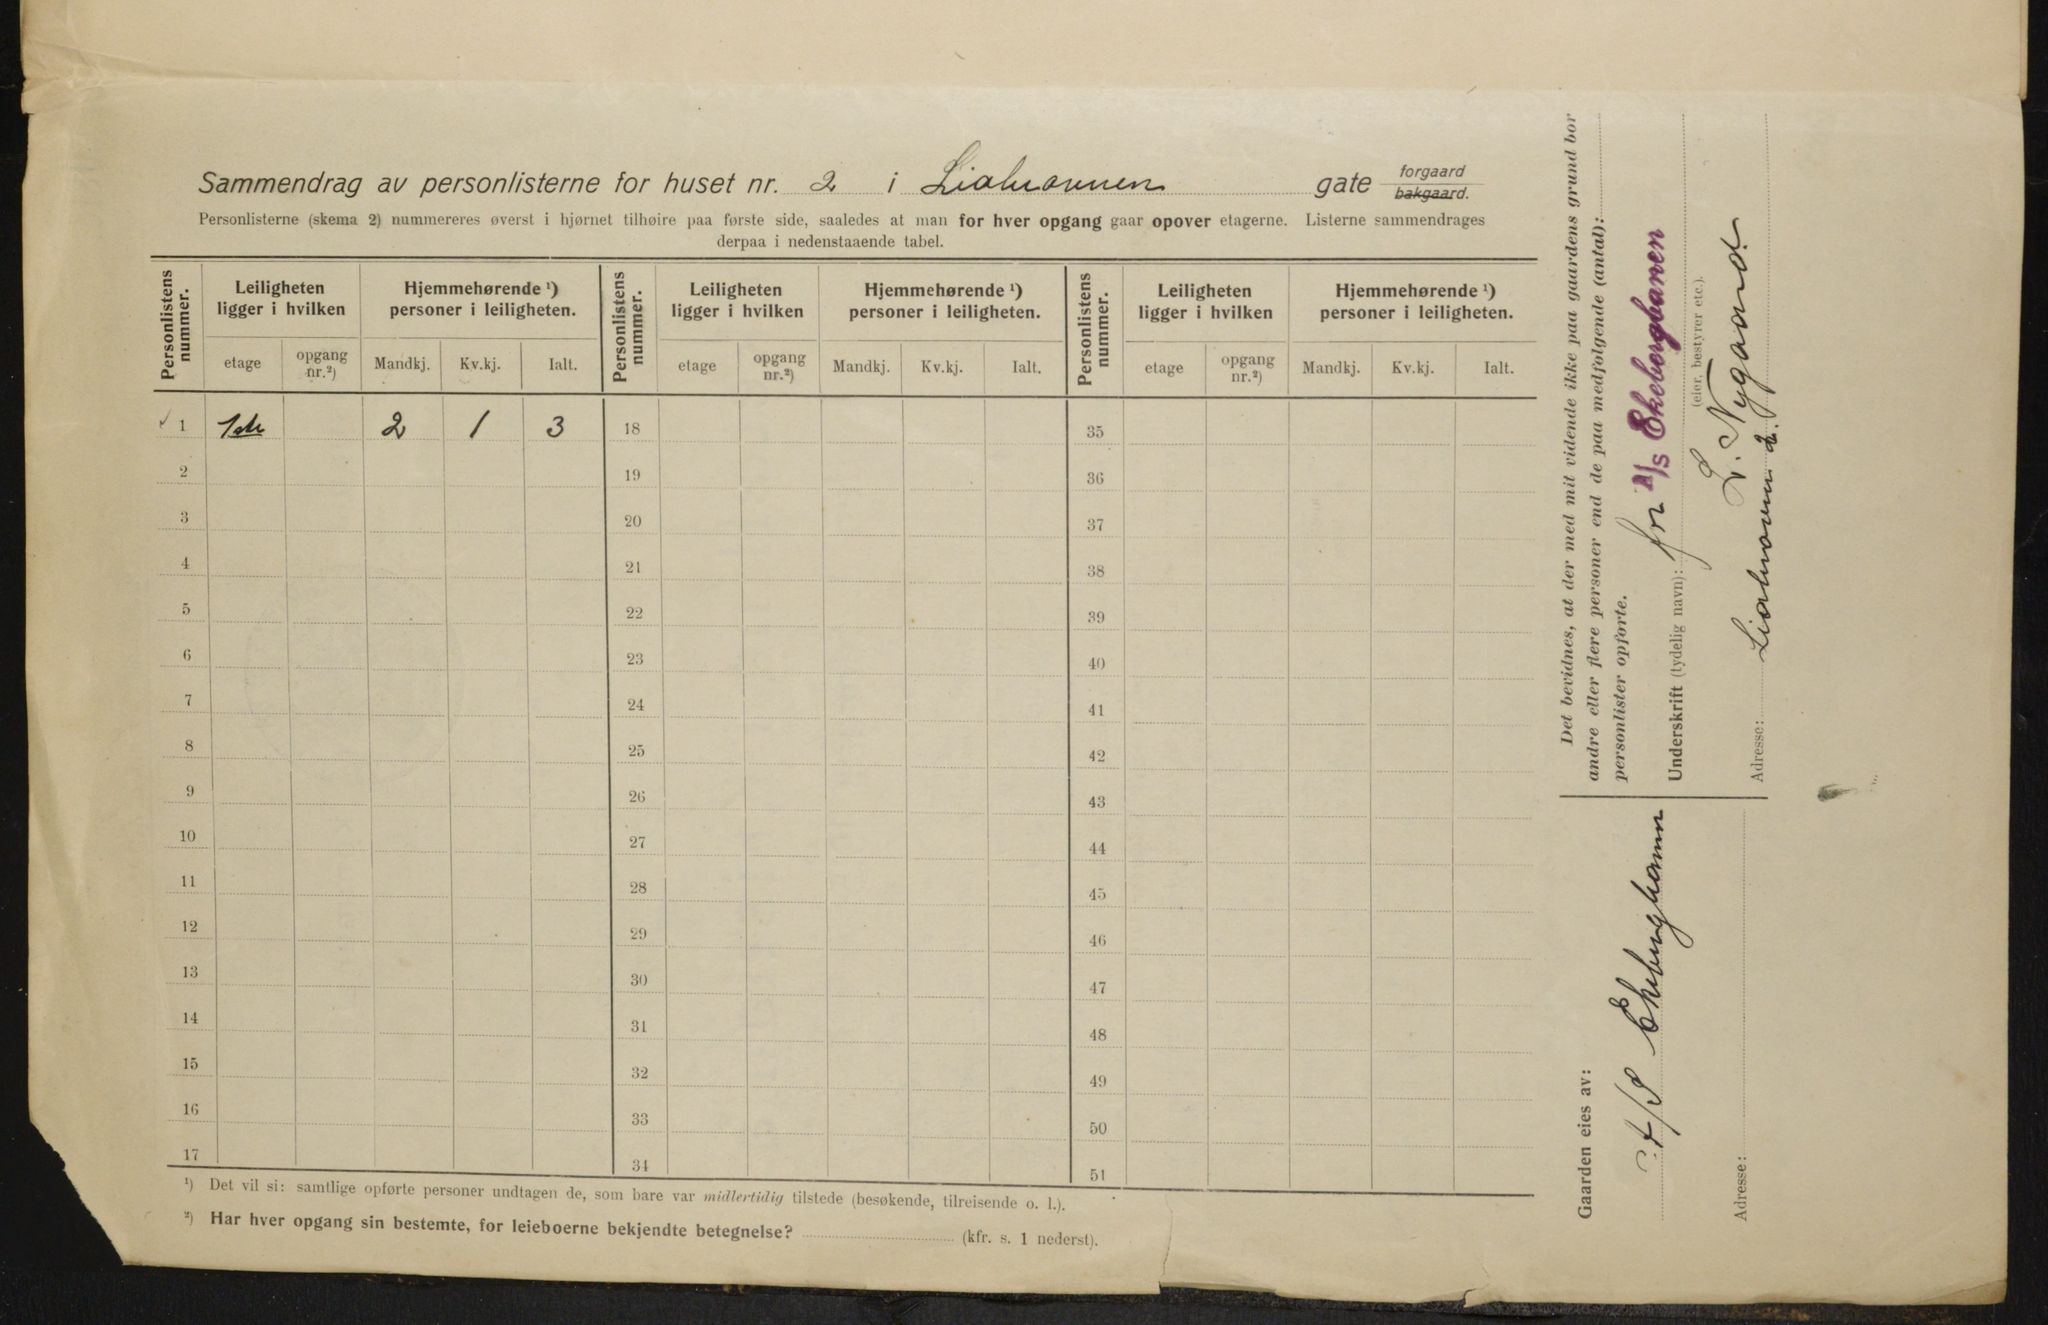 Sammendrag av personlisterne for huset nr. 2 i Liabrovnen gate forgaard bakgaard.
Personlisterne (skema 2) nummereres øverst i hjørnet tilhøire paa første side, saaledes at man for hver opgang gaar opover etagerne. Listerne sammendrages
derpaa i nedenstaaende tabel.
Personlistens nummer. Leiligheten ligger i hvilken Hjemmehørende ¹) personer i leiligheten. Personlistens nummer. Leiligheten ligger i hvilken Hjemmehørende ¹) personer i leiligheten. Personlistens nummer. Leiligheten ligger i hvilken Hjemmehørende ¹) personer i leiligheten.
etage opgang nr.²) Mandkj. Kv.kj. Ialt. etage opgang nr.²) Mandkj. Kv.kj. Ialt. etage opgang nr.²) Mandkj. Kv.kj. Ialt.
✓ 1 1ste 2 1 3 18 35
2 19 36
3 20 37
4 21 38
5 22 39
6 23 40
7 24 41
8 25 42
9 26 43
10 27 44
11 28 45
12 29 46
13 30 47
14 31 48
15 32 49
16 33 50
17 34 51
¹) Det vil si: samtlige opførte personer undtagen de, som bare var midlertidig tilstede (besøkende, tilreisende o. l.).
²) Har hver opgang sin bestemte, for leieboerne bekjendte betegnelse? (kfr. s. 1 nederst).
Gaarden eies av:
A/S Ekebergbanen
Adresse:
Det bevidnes, at der med mit vidende ikke paa gaardens grund bor
andre eller flere personer end de paa medfølgende (antal):
personlister opførte.
for A/S Ekebergbanen
Underskrift (tydelig navn):
(eier, bestyrer etc.).
L. Nygaard
Adresse: Liabrovnen 2.